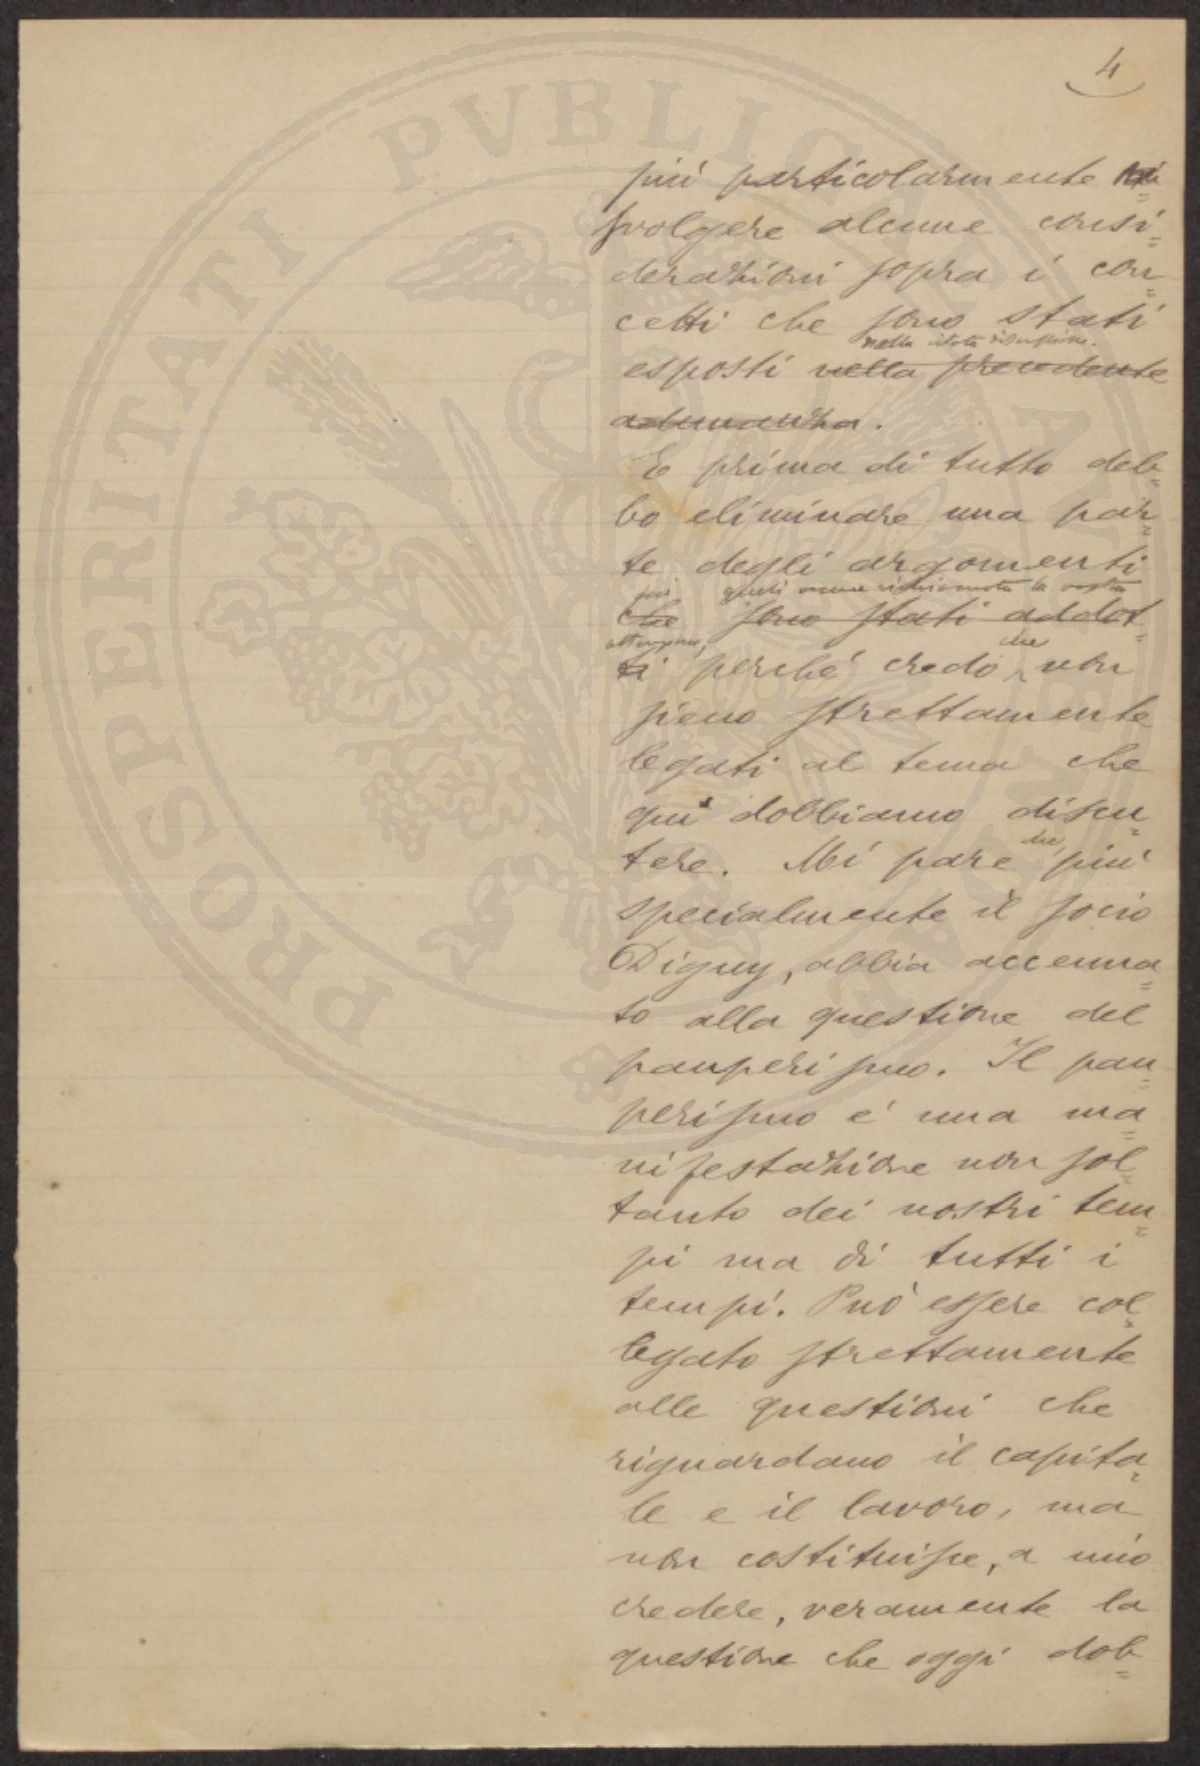 4
più particolarmente
svolgere alcune consi=
derazioni sopra i con=
cetti che sono stati
nella citata discussione.
esposti nella precedente
adunanza.
E prima di tutto deb=
bo eliminare una par=
te degli argomenti
quali venne richiamata la vostra
che sono stati addot=
attenzione, che
ti perché credo non
sieno strettamente
legati al tema che
qui dobbiamo discu=
che,
tere. Mi pare più
specialmente il socio
Digny, abbia accenna=
to alla questione del
pauperismo. Il pau=
perismo é una ma=
nifestazione non sol=
tanto dei nostri tem=
pi ma di tutti i
tempi. Può essere col=
legato strettamente
alle questioni che
riguardano il capita=
le e il lavoro, ma
non costituisce, a mio
credere, veramente la
questione che oggi dob=
PROSPERITATI PVBLICAE AVGENDAE